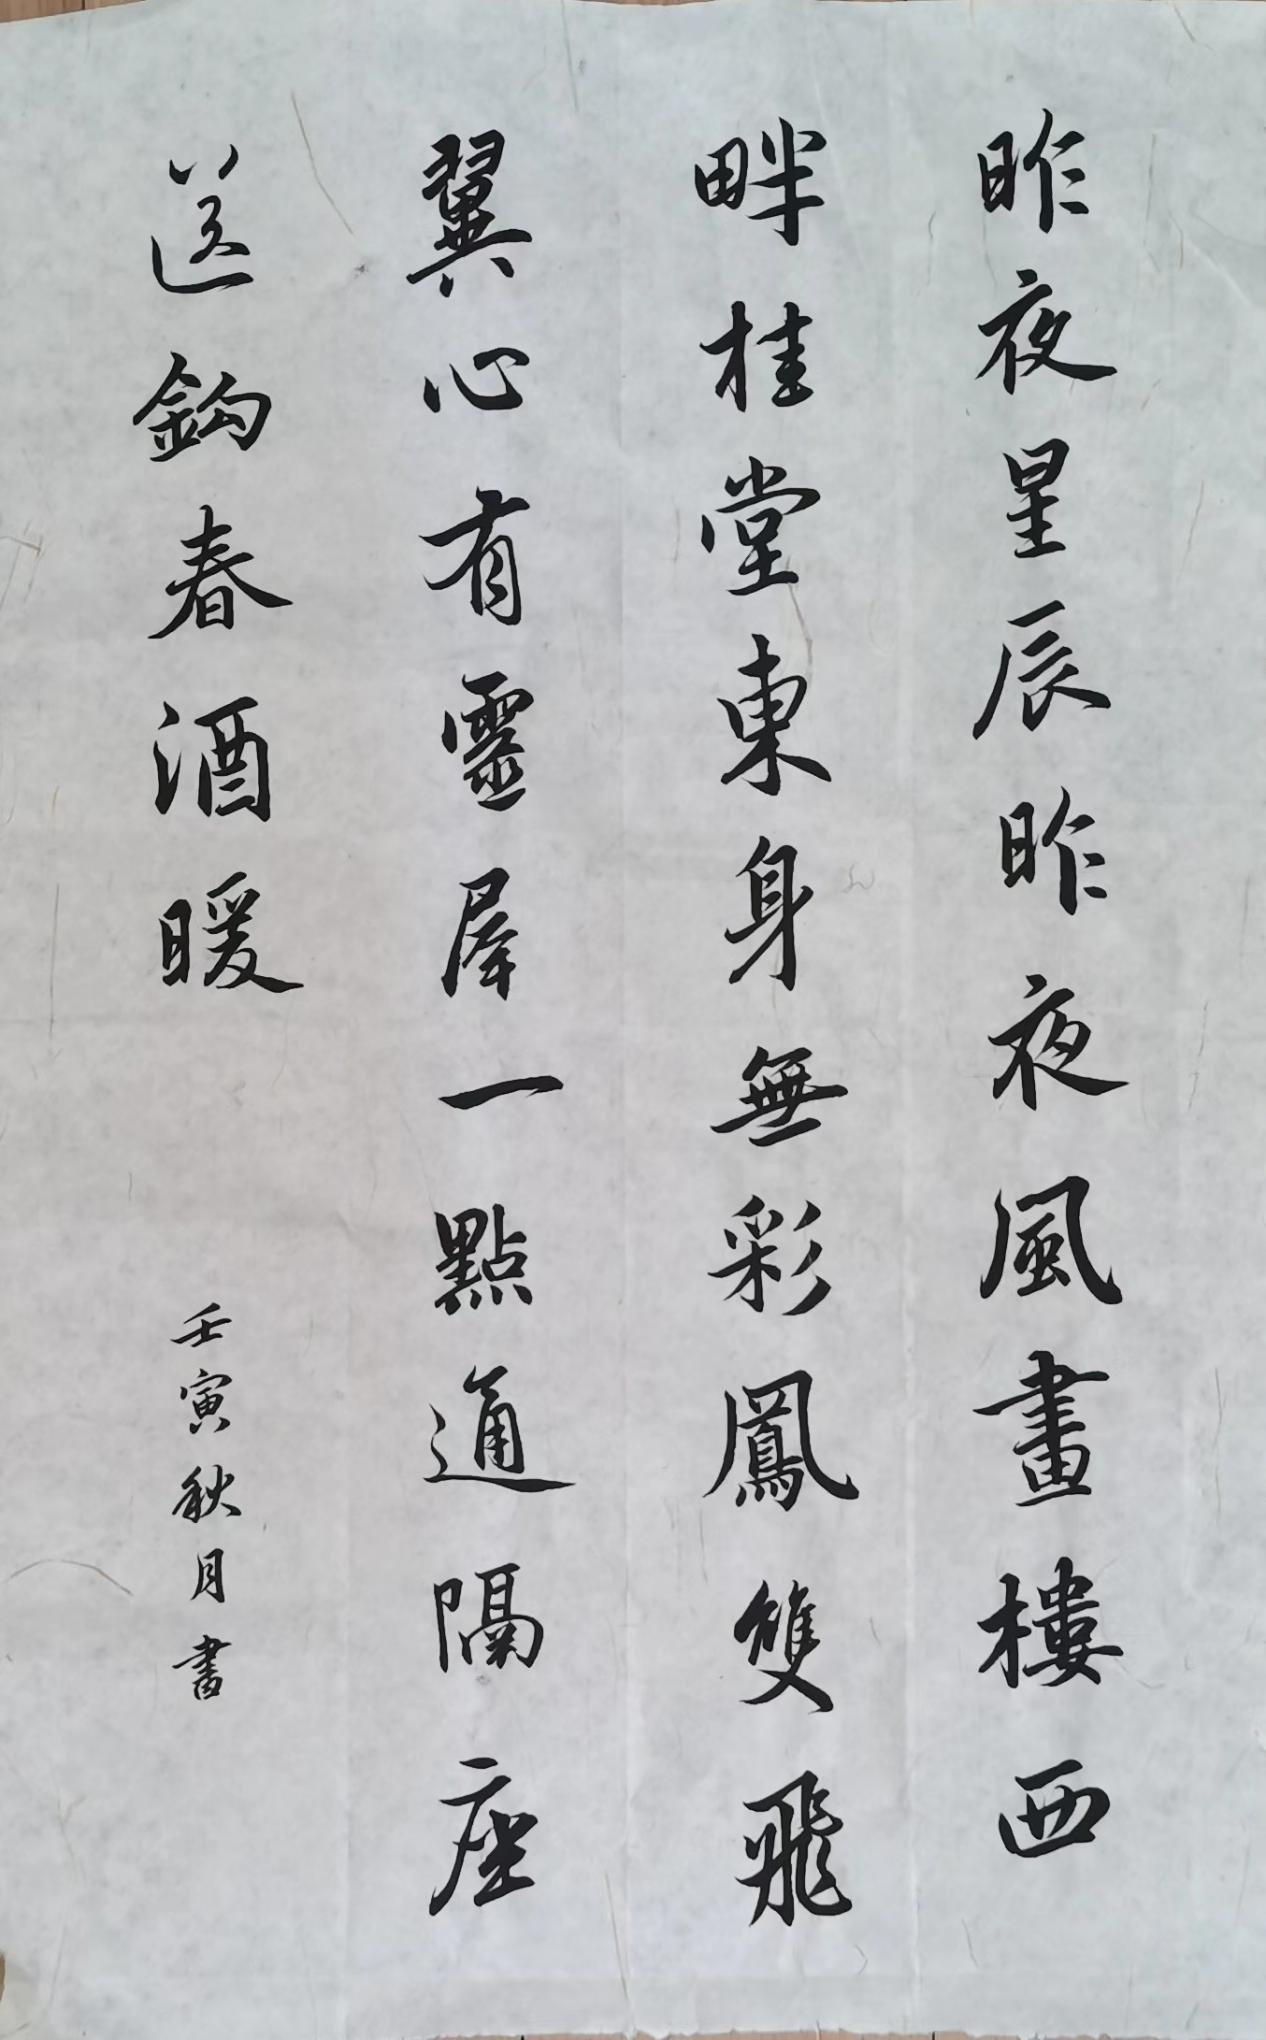 昨夜星辰昨夜風畫樓西
畔桂堂東身無彩鳳雙飛
翼心有靈犀一點通隔座
送鈎春酒暖
壬寅秋月書